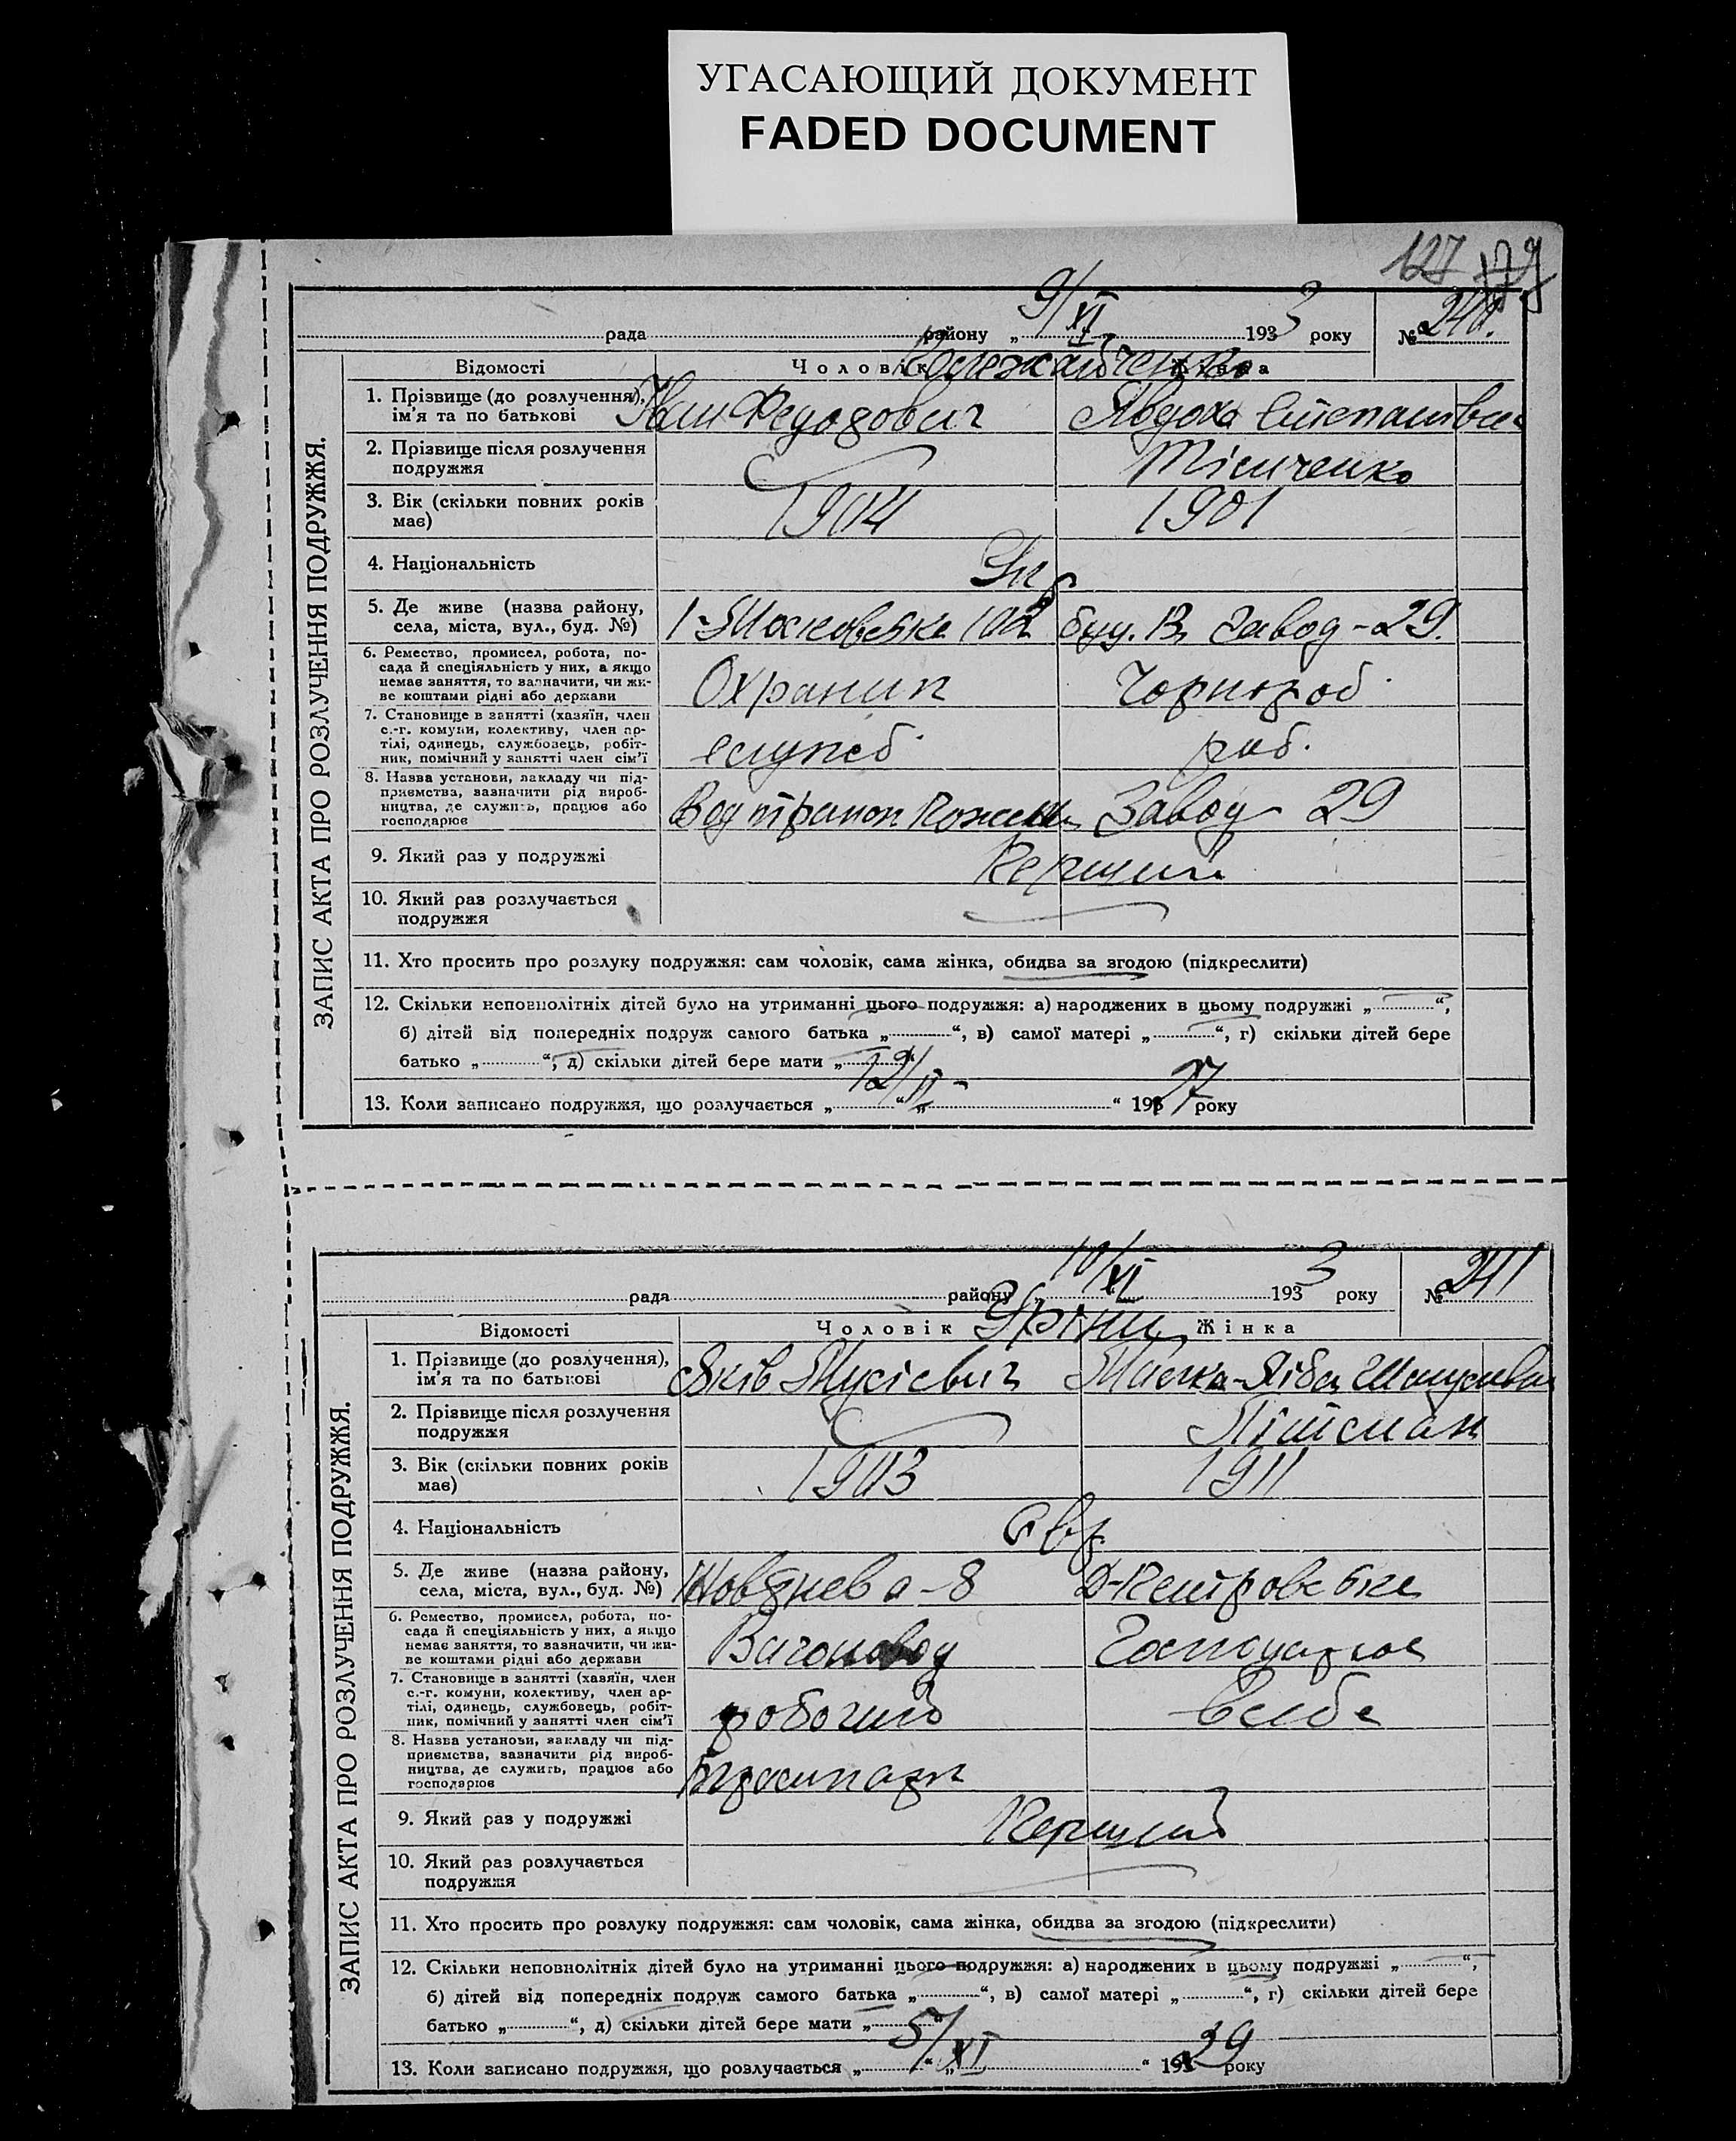 УГАСАЮЩИЙ ДОКУМЕНТ
FADED DOCUMENT
127 179
ЗАПИС АКТА ПРО РОЗЛУЧЕННЯ ПОДРУЖЖЯ.
рада району „ 9/XI 1933 року № 240.
Відомості Чоловік Жінка
1. Прізвище (до розлучення), Іван Федорович Явдоха Степанівна
ім'я та по батькові
2. Прізвище після розлучення
подружжя
3. Вік (скільки повних років 1904 1901
має)
4. Національність Укр
5. Де живе (назва району, 102 Завод -29.
села, міста, вул., буд. №)
6. Ремество, промисел, робота, по-
сада й спеціяльність у них, а якщо Охраник Чорнороб.
немає заняття, то вазначити, чи жи-
ве коштами рідні або держави
7. Становище в занятті (хазяїн, член
с.-г. комуни, колективу, член ар-
тілі, одинець, службовець, робіт- служб. роб.
ник, помічний у занятті член сім'ї
8. Назва установи, закладу чи під-
приємства, зазначити рід вироб-
ництва, де служить, працює або Завод 29
господарює
9. Який раз у подружжі Перший
10. Який раз розлучається
подружжя
11. Хто просить про розлуку подружжя: сам чоловік, сама жінка, обидва за згодою (підкреслити)
12. Скільки неповнолітніх дітей було на утриманні цього подружжя: а) народжених в цьому подружжі „ “,
б) дітей від попередніх подруж самого батька „ “, в) самої матері „ “, г) скільки дітей бере
батько „ “, д) скільки дітей бере мати „ “
13. Коли записано подружжя, що розлучається „ 12/ “ „ II “ 1927 року
ЗАПИС АКТА ПРО РОЗЛУЧЕННЯ ПОДРУЖЖЯ.
рада району „ 10/XI 1933 року № 241
Відомості Чоловік Жінка
1. Прізвище (до розлучення), Яків Мусієвич
ім'я та по батькові
2. Прізвище після розлучення
подружжя
3. Вік (скільки повних років 1903 1911
має)
4. Національність Євр.
5. Де живе (назва району, Жовтнева - 8 Д-Петровське
села, міста, вул., буд. №)
6. Ремество, промисел, робота, по-
сада й спеціяльність у них, а якщо Вагоновод Господарює
немає заняття, то зазначити, чи жи-
ве коштами рідні або держави
7. Становище в занятті (хазяїн, член
с.-г. комуни, колективу, член ар-
тілі, одинець, службовець, робіт- робочий в себе
ник, помічний у занятті член сім'ї
8. Назва установи, закладу чи під-
приємства, зазначити рід вироб-
ництва, де служить, працює або
господарює
9. Який раз у подружжі Перший
10. Який раз розлучається
подружжя
11. Хто просить про розлуку подружжя: сам чоловік, сама жінка, обидва за згодою (підкреслити)
12. Скільки неповнолітніх дітей було на утриманні цього подружжя: а) народжених в цьому подружжі „ “,
б) дітей від попередніх подруж самого батька „ “, в) самої матері „ “, г) скільки дітей бере
батько „ “, д) скільки дітей бере мати „ “
13. Коли записано подружжя, що розлучається „ 5/ “ „ XI “ 1929 року